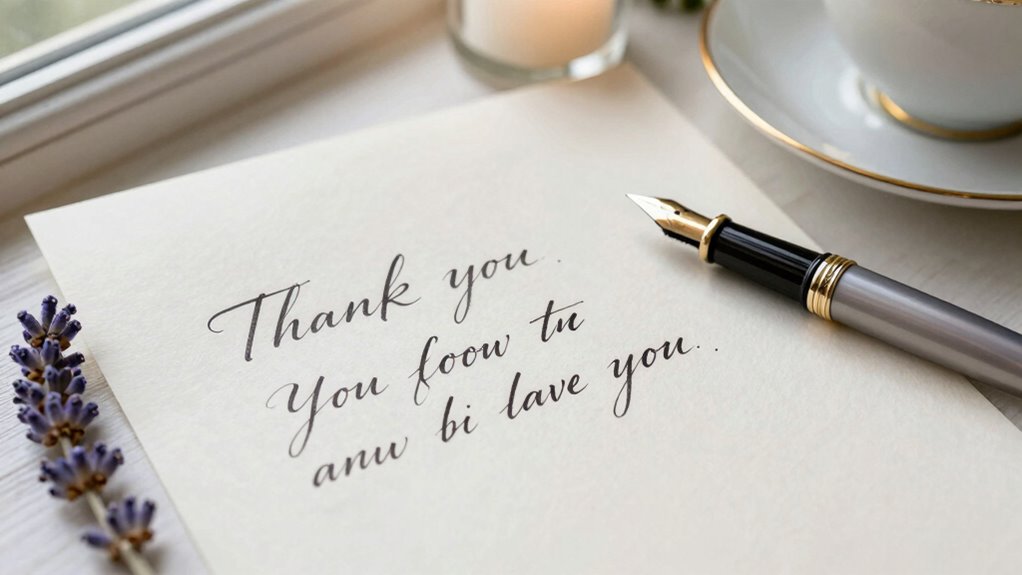 Thank you.
You foow tu
anw bi lave you..